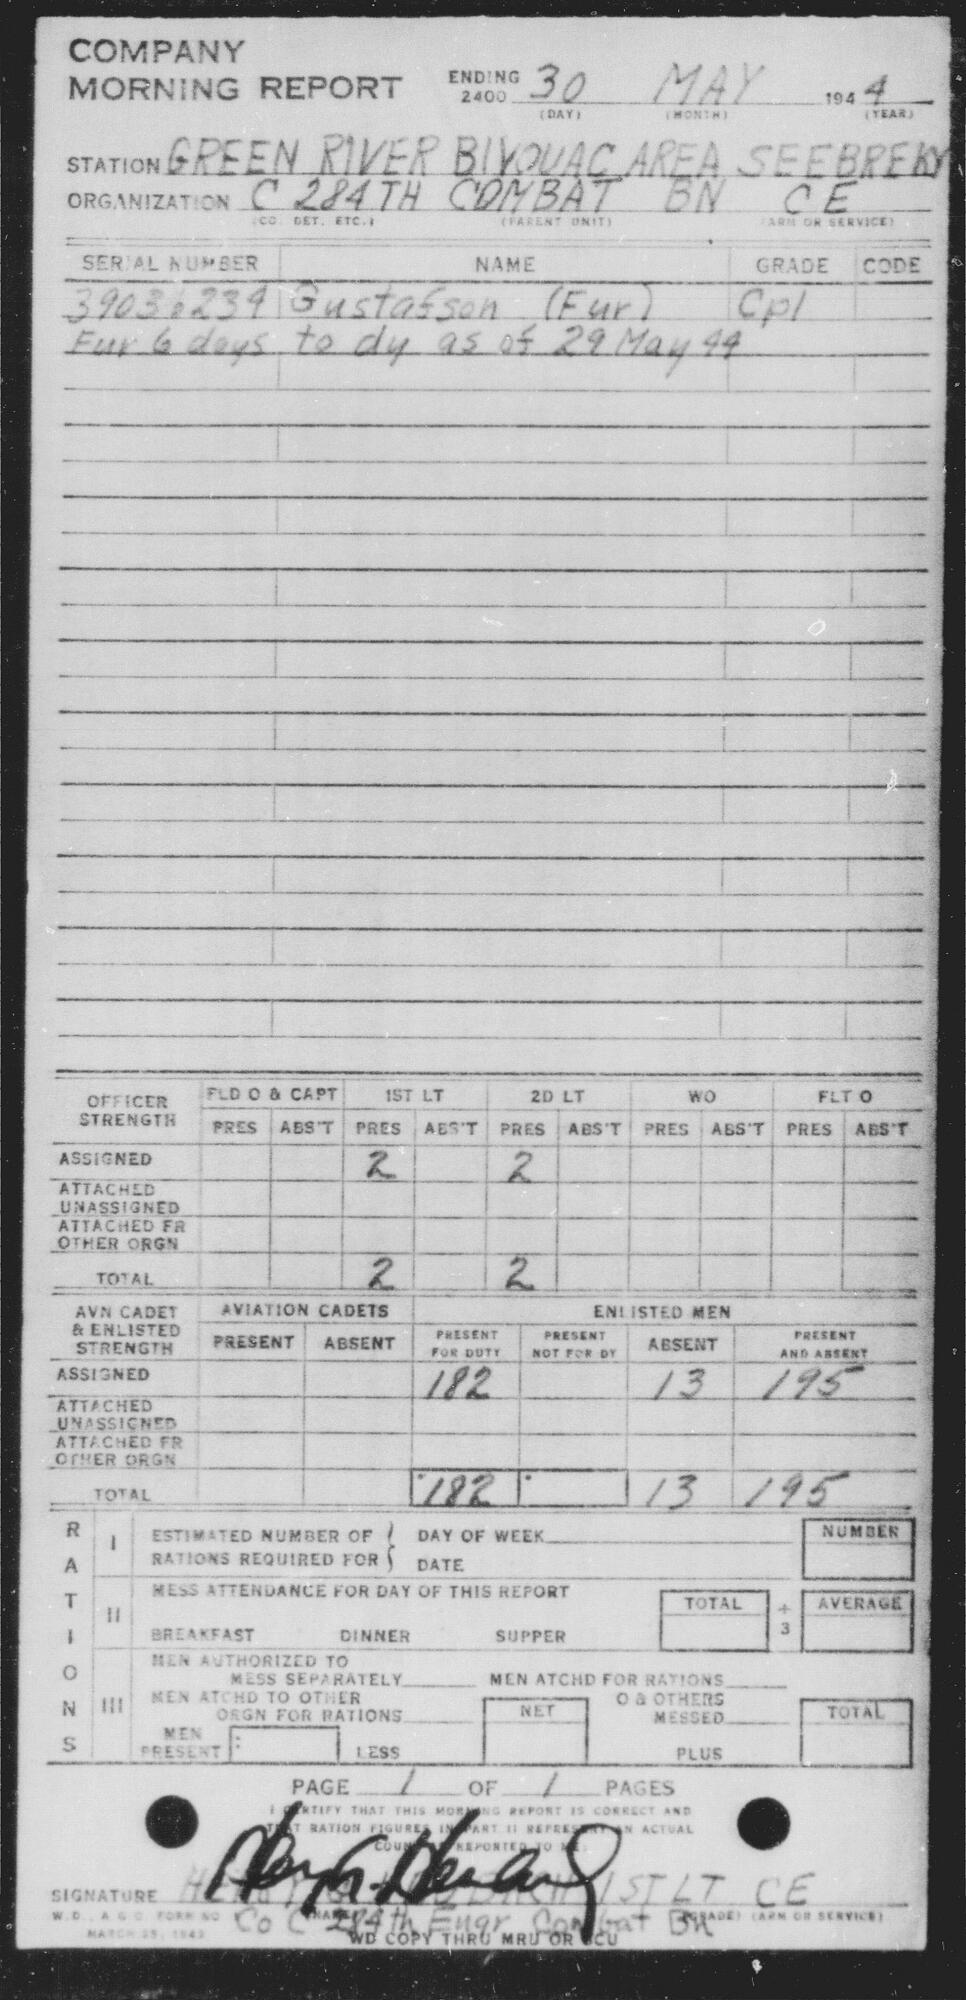 COMPANY
MORNING REPORT ENDING 2400 30 MAY 194 4
(DAY) (MONTH) (YEAR)
STATION GREEN RIVER BIVOUAC AREA SEEBREE KY
ORGANIZATION C 284TH COMBAT BN CE
(CO. DET. ETC.) (PARENT UNIT) (ARM OR SERVICE)
SERIAL NUMBER NAME GRADE CODE
Gustafson (Fur) Cpl
Fur 6 days to dy as of 29 May 44
OFFICER STRENGTH FLD O & CAPT 1ST LT 2D LT WO FLT O
PRES ABS'T PRES ABS'T PRES ABS'T PRES ABS'T PRES ABS'T
ASSIGNED 2 2
ATTACHED UNASSIGNED
ATTACHED FR OTHER ORGN
TOTAL 2 2
AVN CADET & ENLISTED STRENGTH AVIATION CADETS ENLISTED MEN
PRESENT ABSENT PRESENT FOR DUTY PRESENT NOT FOR DY ABSENT PRESENT AND ABSENT
ASSIGNED 182 13 195
ATTACHED UNASSIGNED
ATTACHED FR OTHER ORGN
TOTAL 182 13 195
RATIONS
I ESTIMATED NUMBER OF RATIONS REQUIRED FOR { } DAY OF WEEK DATE NUMBER
II MESS ATTENDANCE FOR DAY OF THIS REPORT TOTAL ÷ 3 AVERAGE
BREAKFAST DINNER SUPPER
III MEN AUTHORIZED TO MESS SEPARATELY MEN ATCHD FOR RATIONS
MEN ATCHD TO OTHER ORGN FOR RATIONS NET O & OTHERS MESSED TOTAL
MEN PRESENT : LESS PLUS
PAGE 1 OF 1 PAGES
I CERTIFY THAT THIS MORNING REPORT IS CORRECT AND
THAT RATION FIGURES IN PART II REPRESENT AN ACTUAL
COUNT REPORTED TO ME.
SIGNATURE 1ST LT CE
W.D., A.G.O. FORM NO (GRADE) (ARM OR SERVICE)
MARCH 25, 1943
Co C 284th Engr Combat Bn
WD COPY THRU MRU OR SCU